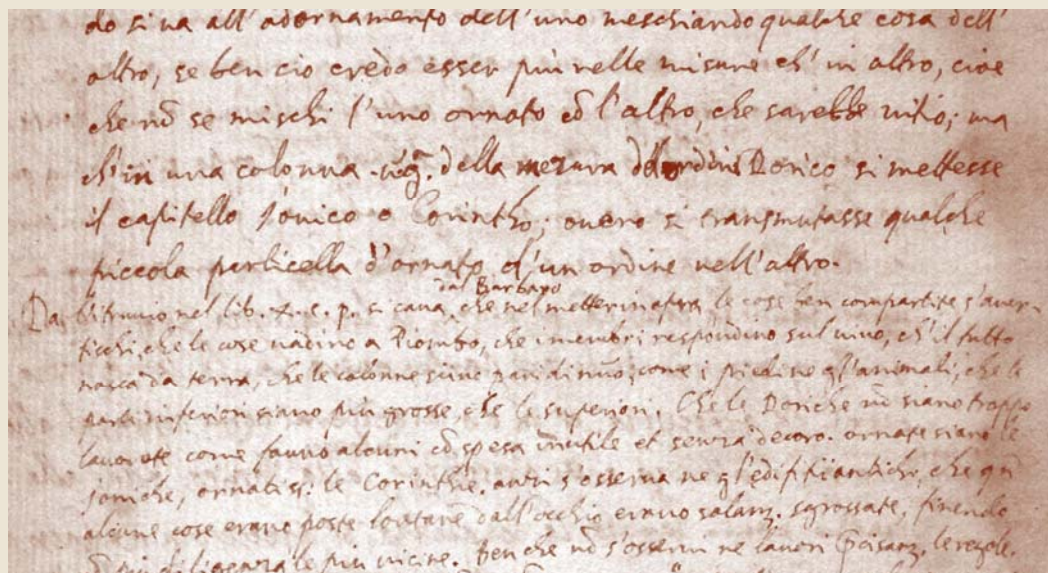 do si va all'adornamento dell'uno meschiando qualche cosa dell'
altro, se ben cio credo esser più nelle misure ch'in altro, cioe
che nō se mischi l'uno ornato cō l'altro, che sarebbe vitio; ma
ch'in una colonna .v.g. della mezura dell'ordine Dorico si mettesse
il capitello Jonico o Corinthio; overo si transmutasse qualche
piccola particella d'ornato d'un ordine nell'altro.
dal Barbaro
Da Vitruvio nel lib. si cava, che nel metter in opera le cose ben compartite s'aver-
tischi, che le cose vadino a Piombo, che i membri respondino sul vivo, ch'il tutto
nasca da terra, che le colonne siano pari di nũo, come i piedi ne gl'animali, che le
parti inferiori siano più grosse che le superiori. Che le Doriche nō siano troppo
lavorate come fanno alcuni cō spesa inutile et senza decoro. ornate siano le
joniche, ornatiss. le Corinthie. anzi s'osserva ne gl'edifitii antichi, che qñ
alcune cose erano poste lontane dall'occhio erano solam. sgrossate, finendo
più diligenza le più vicine. Ben che nō s'osservi ne lavori le regole.